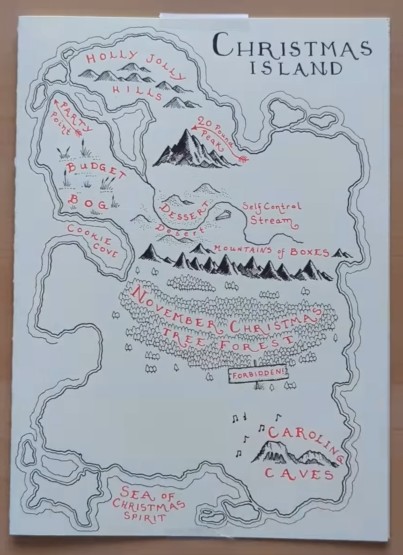 CHRISTMAS
ISLAND
HOLLY JOLLY
HILLS
PARTY
Point
20 Pound
Peaks
BUDGET
BOG
DESSERT
Desert
Self Control
Stream
COOKIE
COVE
MOUNTAINS of BOXES
NOVEMBER CHRISTMAS
TREE FOREST
FORBIDDEN!
CAROLING
CAVES
SEA OF
CHRISTMAS
SPIRIT